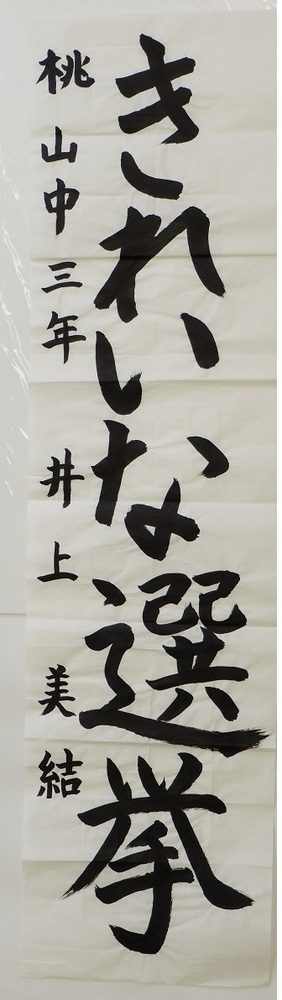 きれいな選挙
桃山中三年 井上 美結